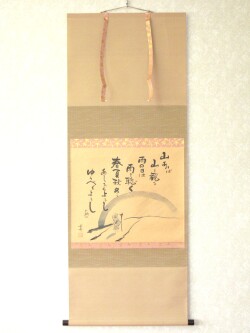 山あれば
山を観る
雨の日は
雨を聴く
春夏秋冬
あしたもよろし
ゆふべもよろし